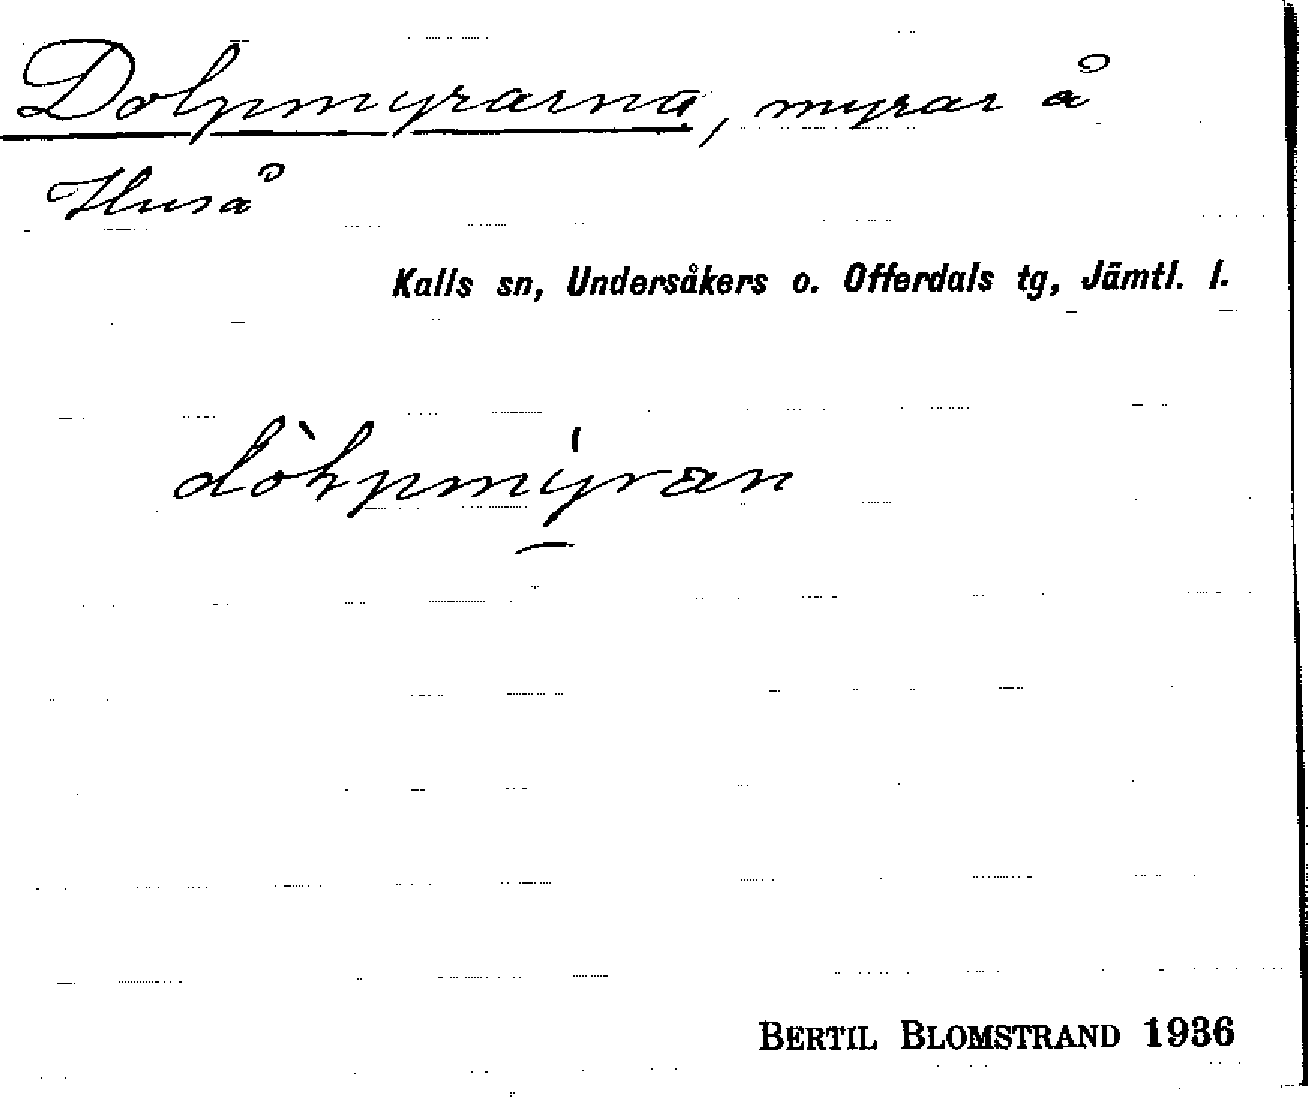 Dolpmyrarna, myrar å
Huså
Kalls sn, Undersåkers o. Offerdals tg, Jämtl. l.
BERTIL BLOMSTRAND 1936